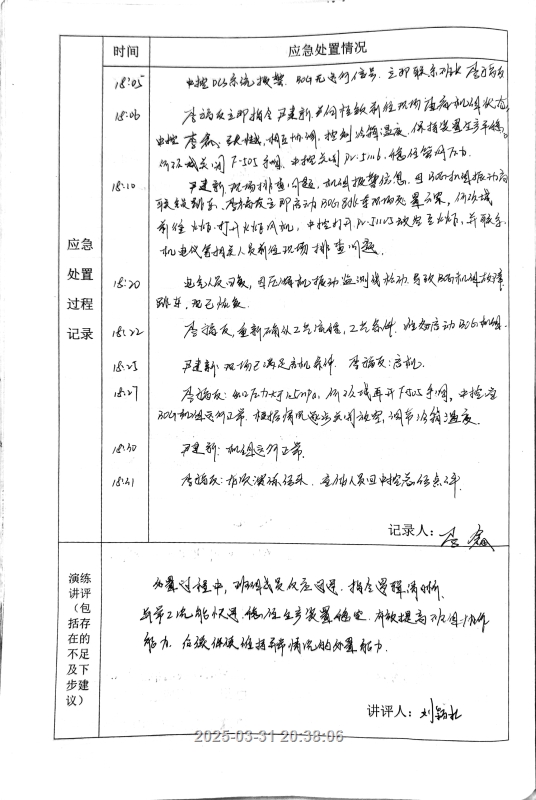 时间 应急处置情况
18:05 中控DCS系统报警，BOG无运行信号，立即联系班长李福友
18:06 李福友立即指令尹建新
中控 控制冷箱温度，保持装置生产平稳。
关闭F505手阀，中控关闭PV-5116，稳住管网压力
18:10 尹建新：现场排查问题，机组报警信息，因BOG机组振动高
联锁跳车，李福友立即启动BOG跳车现场处置方案
前往火炬，打开火炬风机，中控打开PV-5112放空至火炬，并联系
机电仪等相关人员前往现场排查问题。
18:20 电仪人员回复，因压缩机振动监测线松动，导致BOG机组故障
跳车，现已恢复
18:22 李福友，重新确认工艺流程，工艺条件，准备启动BOG机组.
18:25 尹建新：现场已满足启机条件 李福友：启机。
18:27 李福友：压力大于1.5mpa，再开F505手阀，中控
BOG机组运行正常，根据情况逐步关闭放空，调节冷箱温度。
18:30 尹建新：机组运行正常。
18:31 李福友：本次演练结束，人员回中控总结点评
应急
处置
过程
记录
记录人：
演练
讲评
（包
括存
在的
不足
及下
步建
议）
处置过程中，班组成员反应迅速，指令逻辑清晰，
异常工况能快速稳住生产装置稳定，有效提高班组协作
能力，后续继续维持异常情况的处置能力.
讲评人：
2025-03-31 20:38:06